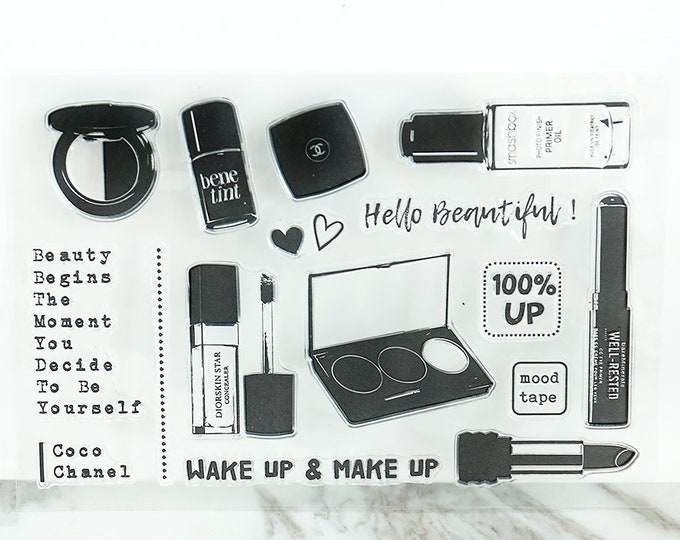 bene
tint
smashbox
PHOTO FINISH
PRIMER
OIL
Hello Beautiful !
Beauty
Begins
The
Moment
You
Decide
To Be
Yourself
Coco
Chanel
DIORSKIN STAR
CONCEALER
100%
UP
mood
tape
bareMinerals
WELL-RESTED
WAKE UP & MAKE UP